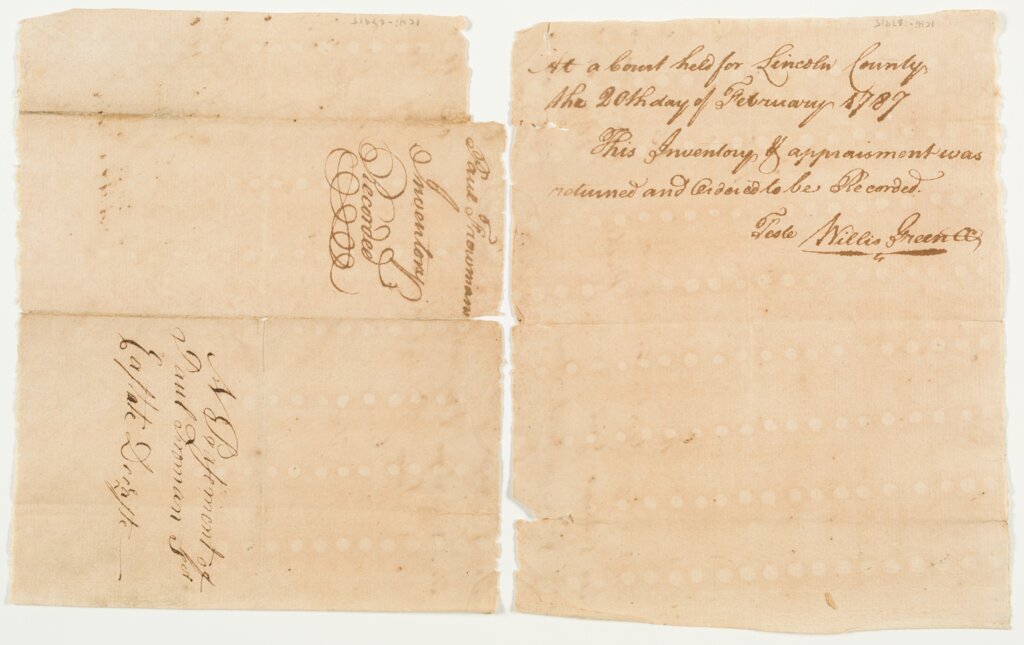 Paul Frowmans
Inventory
Recorded
Paul Froman
Eastate
At a Court held for Lincoln County
the 20th day of February 1787
This Inventory & appraisment was
returned and Ordered to be Recorded.
Teste Willis Green CC
ICHi-67915
ICHi-67915